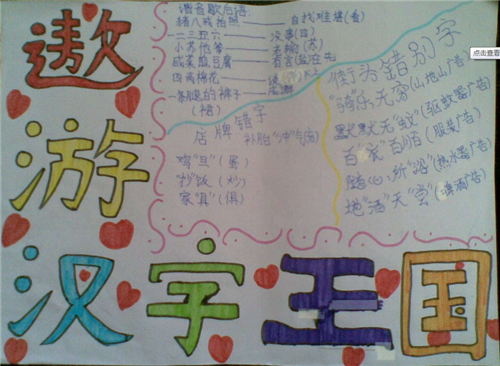 遨
游
汉字王国
谐音歇后语
猪八戒拍照——自找难堪(看)
二三五六——没事(四)
小苏他爹——老输(苏)
咸菜煎豆腐——有言(盐)在先
四两棉花
一条腿的裤子
(裙)
店牌错字
补胎"冲"气(充)
鸡"旦"(蛋)
"抄"饭(炒)
家"具"(俱)
街头错别字
"骑"乐无穷(山地山广告)
默默无"蚊"(驱蚊器广告)
百"衣"百顺(服装广告)
随心所"浴"(热水器广告)
地"酒"天"尝"(啤酒广告)
点击查看